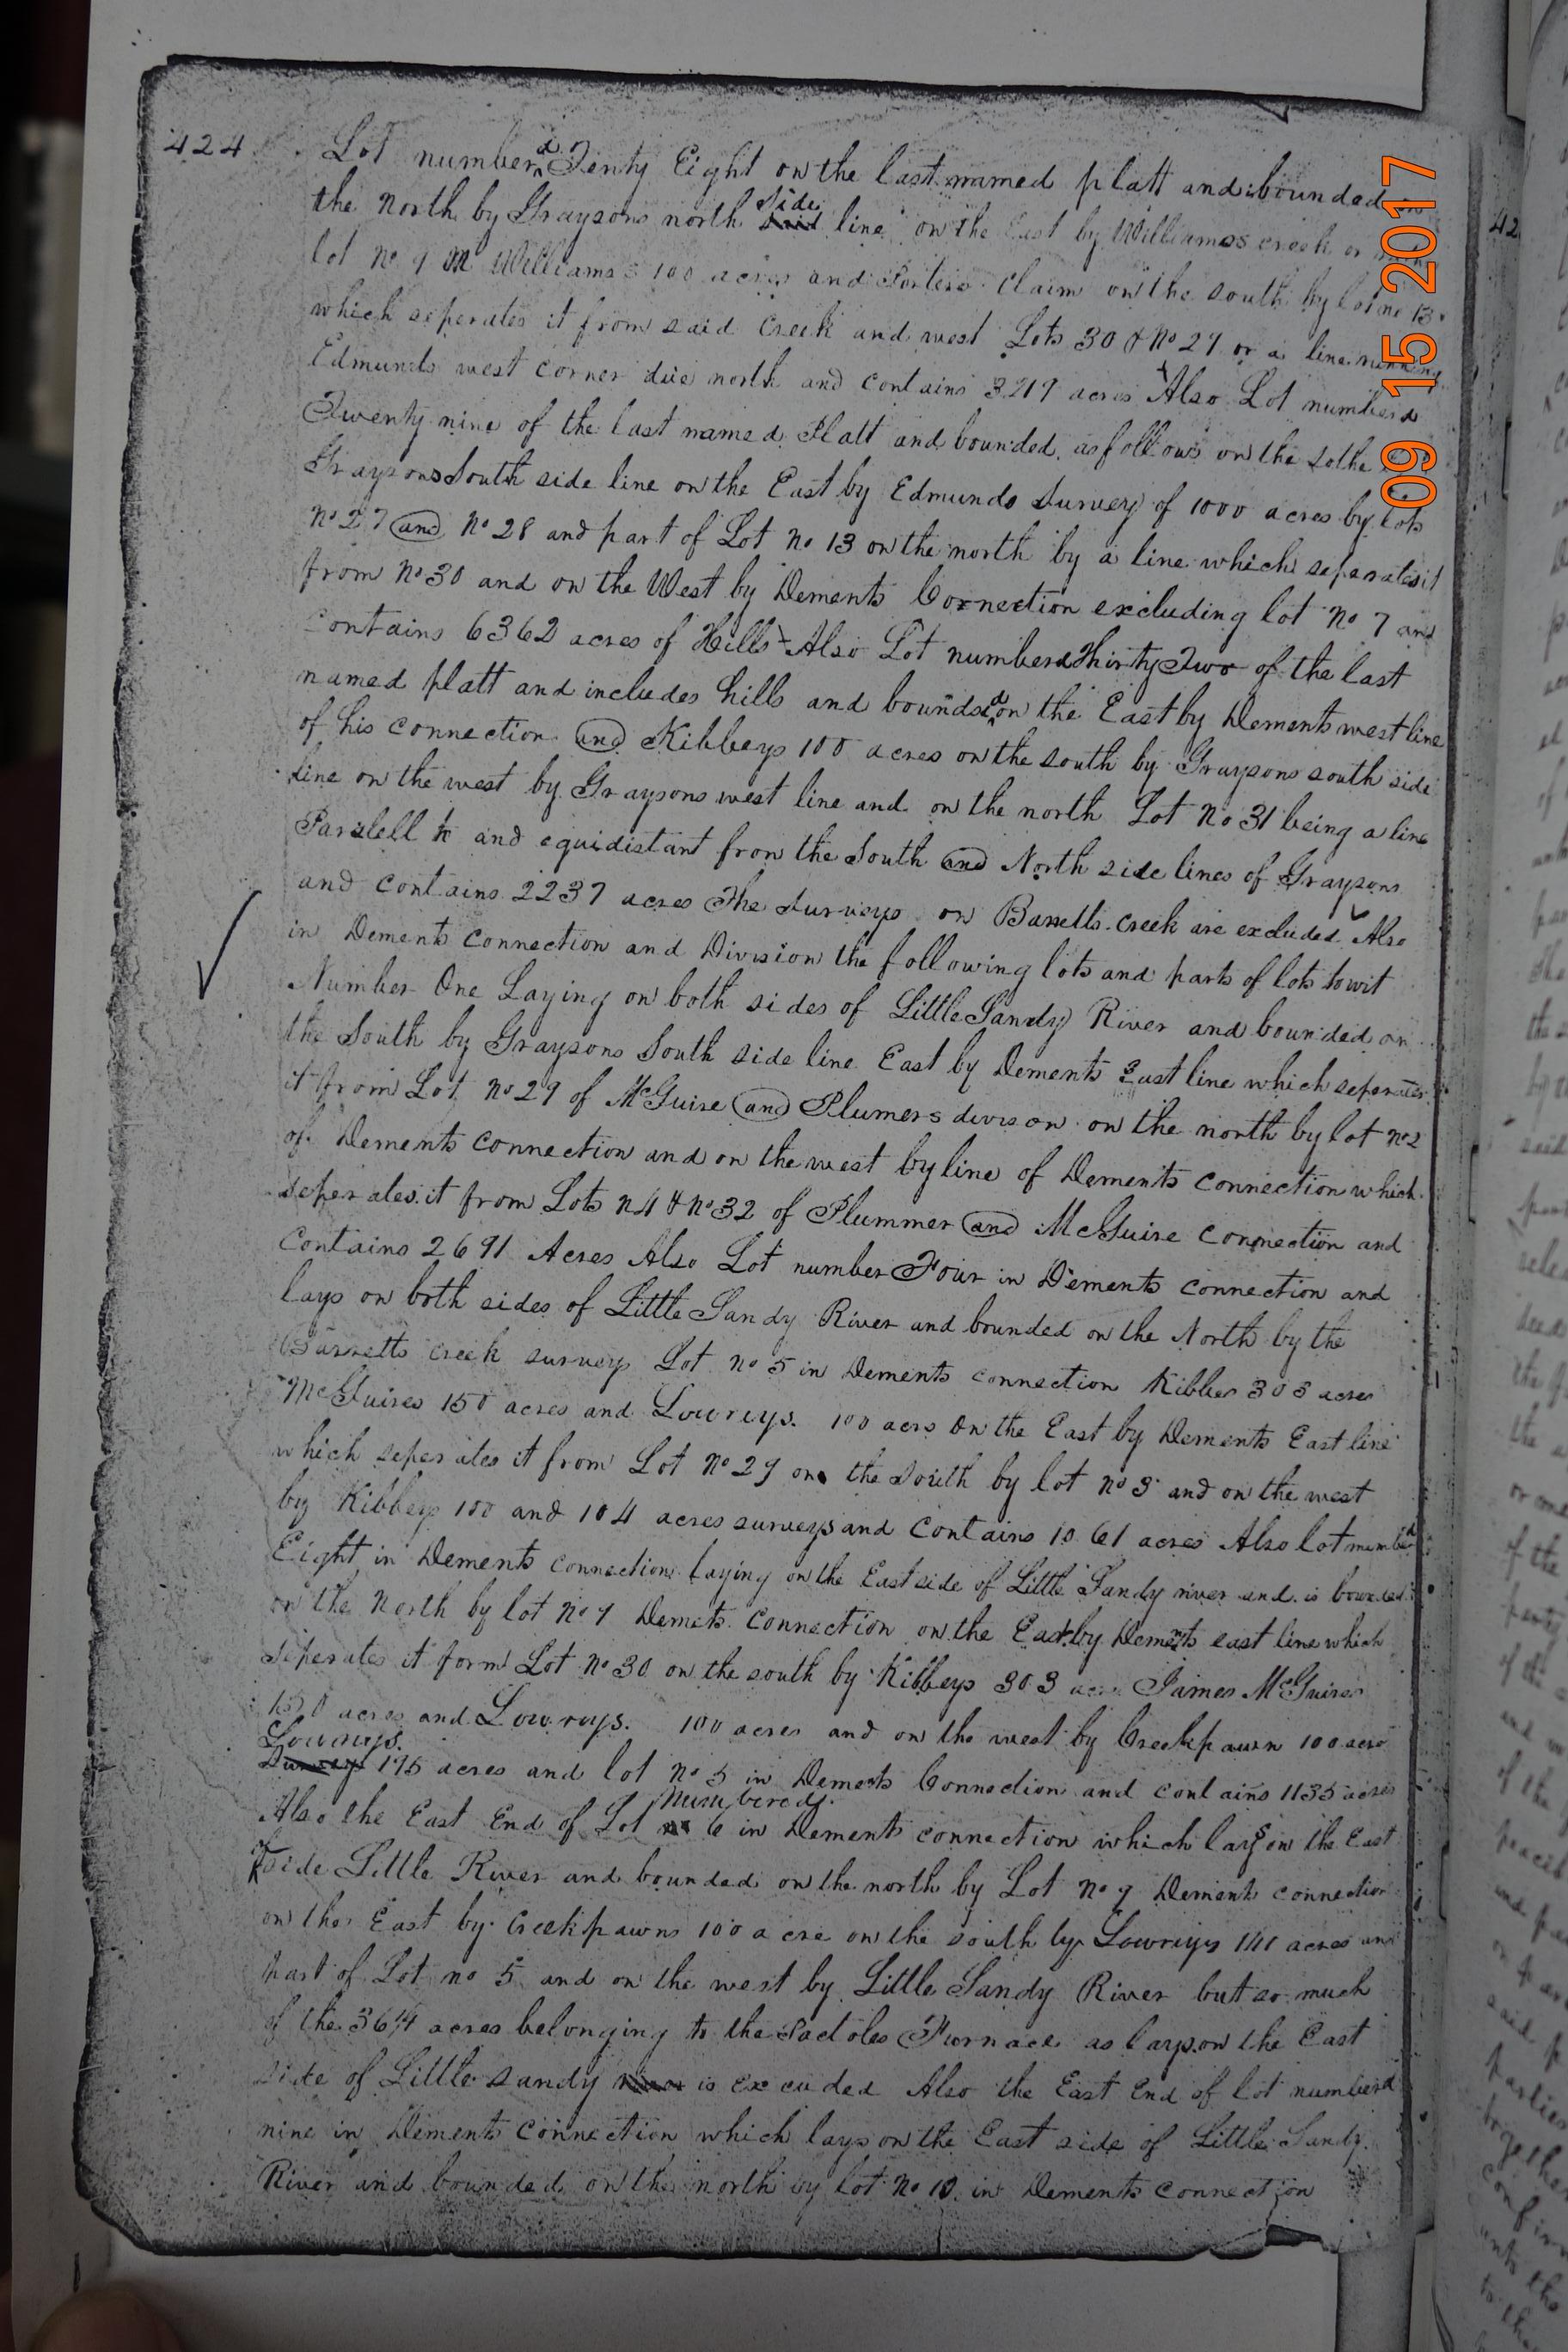 424. Lot numberd Tenty Eight on the last named platt and bounded on
the North by Graysons north side line on the East by Williamss creek or
lot no 9 Williams 100 acres and Porters Claim on the south by lot no 13
which seperates it from said Creek and west Lots 30 & No 29 or a line running
Edmunds west corner due north and contains 3219 acres Also Lot numberd
Twenty nine of the last named Platt and bounded as follows on the sothe
Graysons South side line on the East by Edmunds Survey of 1000 acres by lots
No 27 and No 28 and part of Lot No 13 on the north by a line which seperates it
from No 30 and on the West by Dements Connection excluding lot No 7 and
contains 6362 acres of Hills Also Lot numberd Thirty Two of the last
named platt and includes hills and bounded on the East by Dements west line
of his connection and Kibbeys 100 acres on the south by Graysons south side
line on the west by Graysons west line and on the north Lot No 31 being a line
Paralell to and equidistant from the South and North side lines of Graysons
and contains 2237 acres The Surveys on Barretts creek are excluded Also
in Dements connection and Division the following lots and parts of lots towit
Number One Laying on both sides of Little Sandy River and bounded on
the South by Graysons South side line East by Dements East line which seperates
it from Lot No 29 of McGuire and Plumers divison on the north by lot no 2
of Dements connection and on the west by line of Dements connection which
seperates it from Lots n 4 & No 32 of Plummer and McGuire connection and
contains 2691 Acres Also Lot number Four in Dements connection and
lays on both sides of Little Sandy River and bounded on the North by the
Barretts creek surveys Lot no 5 in Dements connection Kibbes 303 acres
McGuires 150 acres and Lowreys. 100 acrs on the East by Dements East line
which seperates it from Lot No 29 on the South by lot no 3 and on the west
by Kibbeys 100 and 104 acres surveys and contains 1061 acres Also lot numbd
Eight in Dements connection laying on the East side of Little Sandy river and is bounded
on the North by lot No 9 Demets connection on the East by Dements east line which
seperates it form Lot No 30 on the south by Kibbeys 303 acres James McGuires
150 acres and Lowreys. 100 acres and on the west by Creekpawn 100 acre
Lowreys. 175 acres and lot No 5 in Dements Connection and contains 1135 acres
Also the East End of Lot Numbered 6 in Dements connection which lays on the East
side Little River and bounded on the north by Lot No 9 Dements connection
on the East by Creekpawns 100 acre on the south by Lowreys 141 acres and
part of Lot no 5 and on the west by Little Sandy River but so much
of the 3614 acres belonging to the Pactoles Furnace as lays on the East
side of Little sandy is excuded Also the East End of lot numberd
nine in Dements connection which lays on the East side of Little Sandy
River and bounded on the north by lot No 10 in Dements connection
09 15 2017